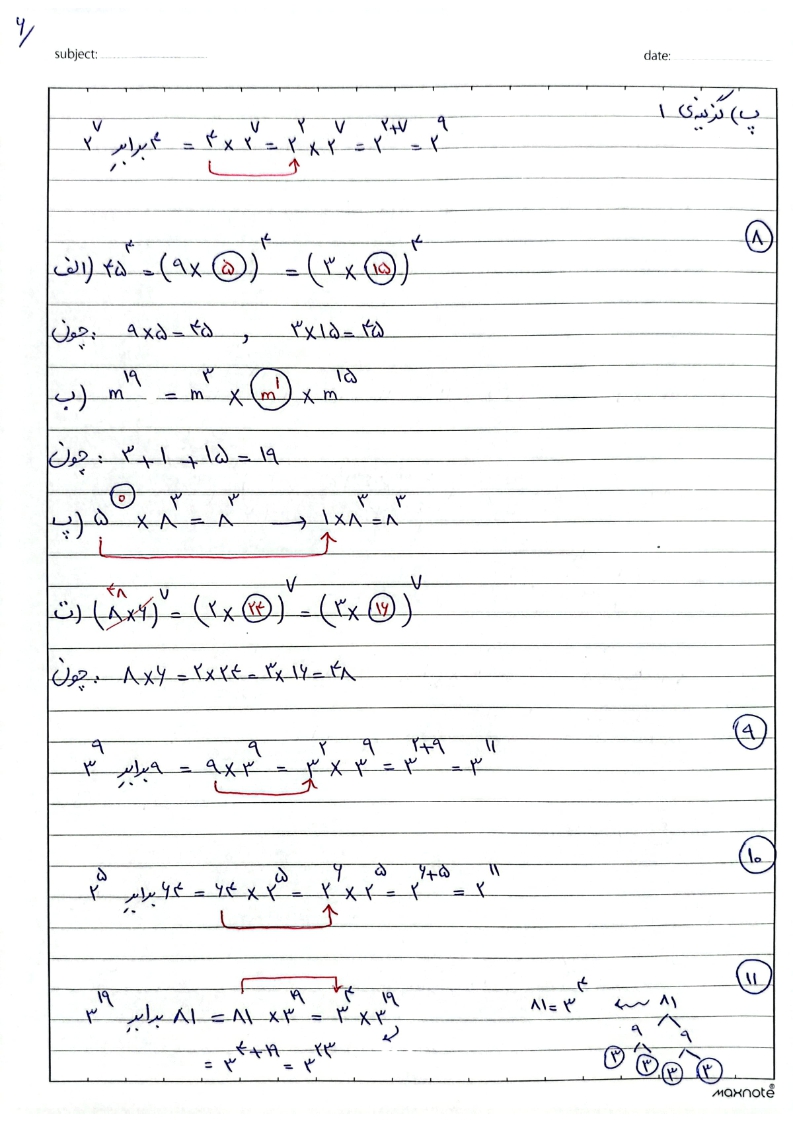 ۶/
subject: date:
پ) گزینه‌ی ۱
۲^۷ برابر ۴ = ۴ × ۲^۷ = ۲^۲ × ۲^۷ = ۲^۲+۷ = ۲^۹
۸
الف) ۴۵^۴ = (۹ × ۵)^۴ = (۳ × ۱۵)^۴
چون: ۹×۵ = ۴۵ , ۳×۱۵ = ۴۵
ب) m^۱۹ = m^۳ × m^۱ × m^۱۵
چون: ۳+۱+۱۵ = ۱۹
پ) ۵^۰ × ۸^۳ = ۸^۳ → ۱×۸^۳ = ۸^۳
۴۸
ت) (۸×۶)^۷ = (۲ × ۲۴)^۷ = (۳ × ۱۶)^۷
چون: ۸×۶ = ۲×۲۴ = ۳×۱۶ = ۴۸
۹
۳^۹ برابر ۹ = ۹×۳^۹ = ۳^۲ × ۳^۹ = ۳^۲+۹ = ۳^۱۱
۱۰
۲^۵ برابر ۶۴ = ۶۴ × ۲^۵ = ۲^۶ × ۲^۵ = ۲^۶+۵ = ۲^۱۱
۱۱
۳^۱۹ برابر ۸۱ = ۸۱ × ۳^۱۹ = ۳^۴ × ۳^۱۹
= ۳^۴+۱۹ = ۳^۲۳
۸۱ = ۳^۴ ← ۸۱
۹ ۹
۳ ۳ ۳ ۳
maxnote®